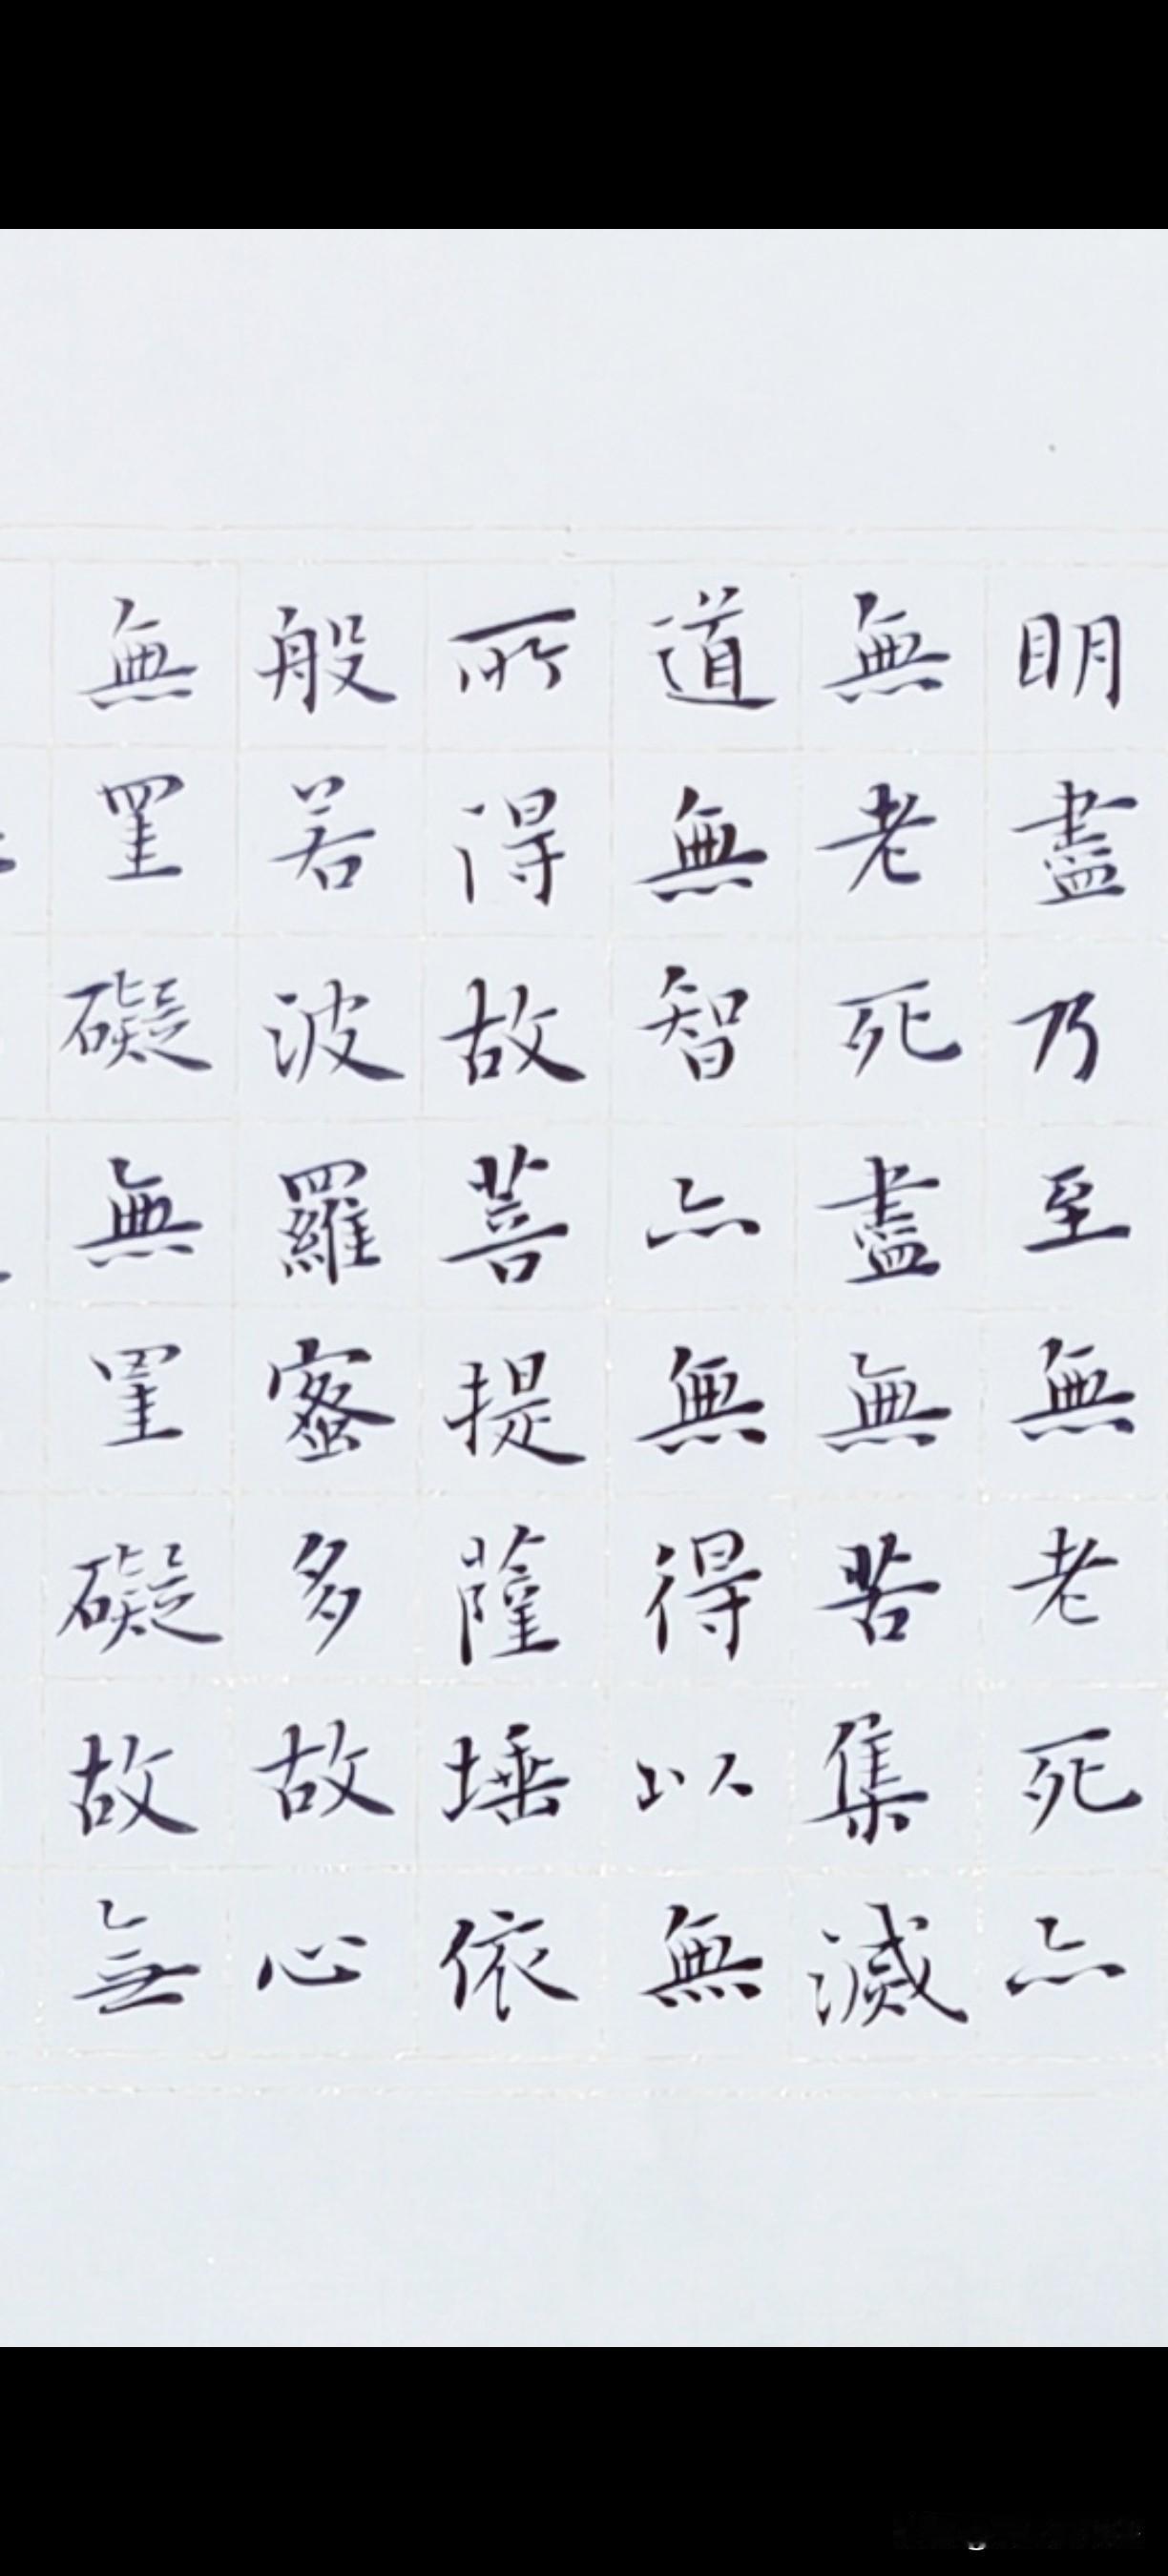 明盡乃至無老死亦
無老死盡無苦集滅
道無智亦無得以無
所得故菩提薩埵依
般若波羅蜜多故心
無罣礙無罣礙故無